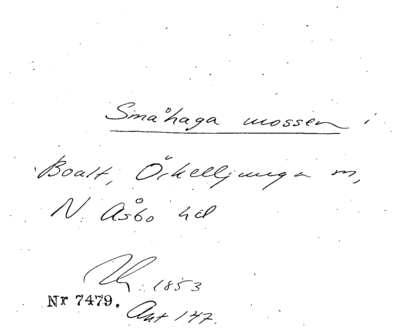 Småhaga mossen i
Boalt, Örkelljunga sn,
N. Åsbo hd
: 1853
Nr 7479.
Ant 147.